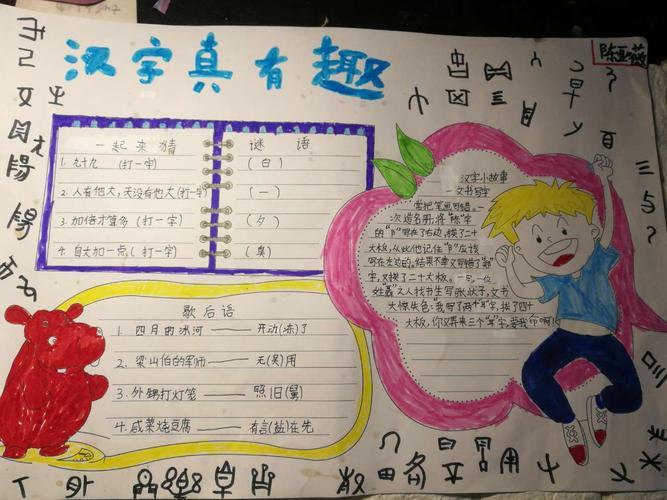 汉字真有趣
陈亚薇
一起来猜 谜语
1. 九十九 (打一字) (白)
2. 人有他大,天没有他大(打一字) (一)
3. 加倍才算多(打一字) (夕)
4. 自大加一点,(打一字) (臭)
歇后语
1、四月的冰河——开动(冻)了
2、梁山伯的军师——无(吴)用
3、外甥打灯笼——照旧(舅)
4、咸菜烧豆腐——有言(盐)在先
汉字小故事
一文书写字
常把笔画写错。一
次造名册,将"陈"字
的"阝"写在了右边,挨了二十
大板,从此他记住"阝"应该
写在左边的,结果不幸又写错了"郑"
字,又挨了二十大板。一句,一位
姓"聂"之人找书生写张状子,文书
大惊失色:"我写了两个"耳"字,挨了四十
大板,你又弄来三个"耳"字,要我命啊!"